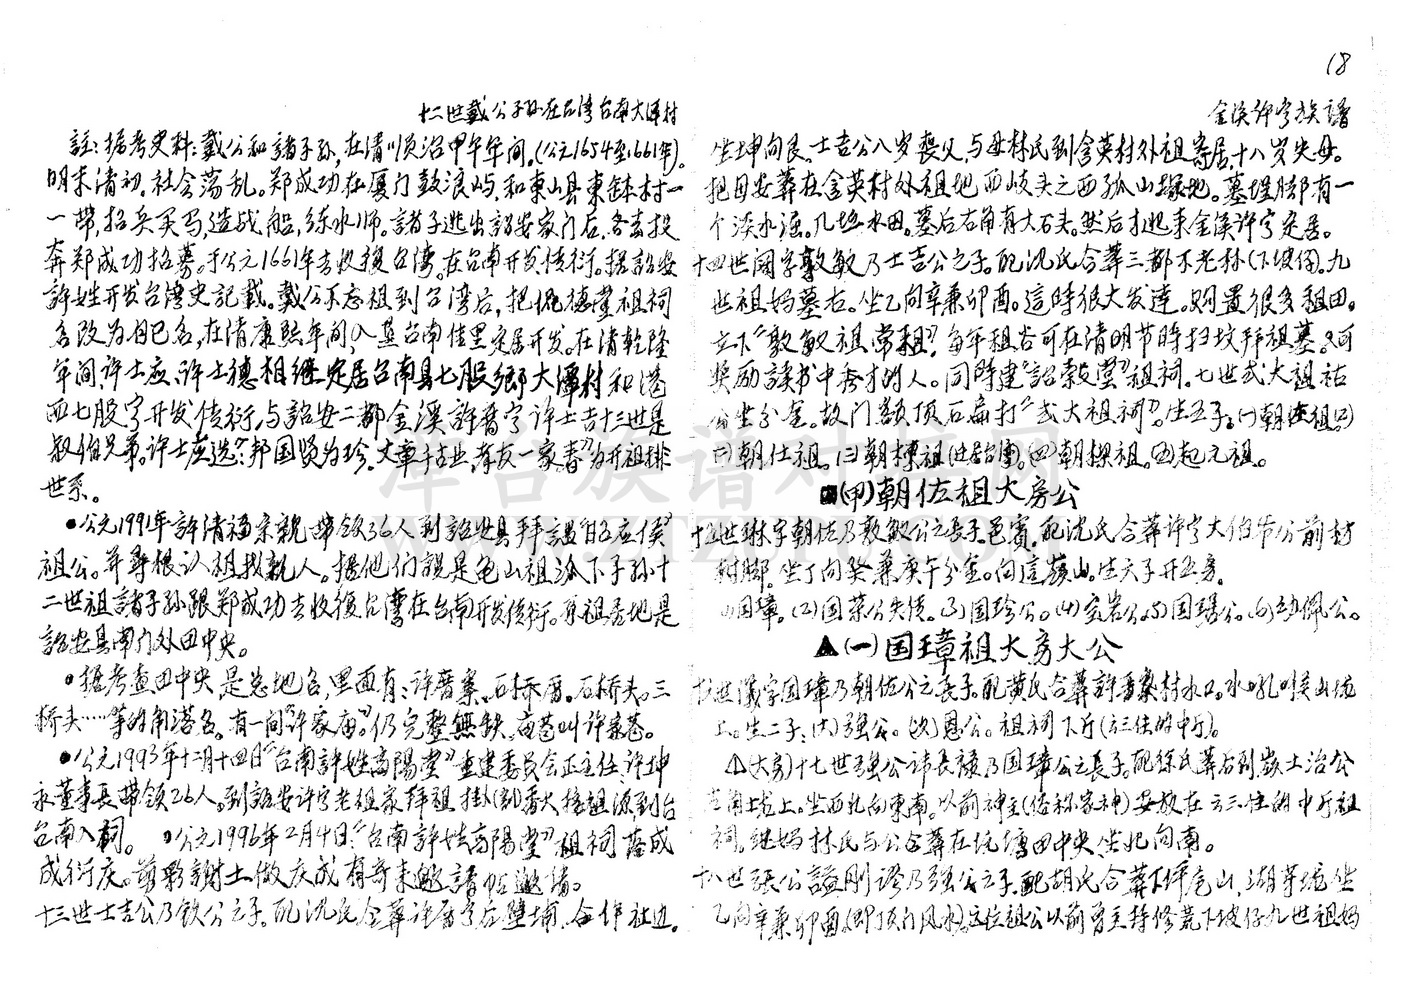 18
十二世戴公子孙在台湾台南大潭村
註：据考史料：戴公和諸子孙，在清顺治甲午年间。(公元1654至1661年)。
明末清初，社会荡乱。郑成功在厦门鼓浪屿，和東山县東 村一
一带，招兵买马，造战船，练水师。諸子逃出詔安家门后，各去投
奔郑成功招募。于公元1661年去收復台湾。在台南开发传衍。据詔安
許姓开发台湾史記載。戴公不忘祖到台湾后，把 德堂祖祠
名改为自己名，在清康熙年间入垦台南佳里定居开发。在清乾隆
年间許士应、許士德相继定居台南县七股鄉大潭村和港
西七股字开发传衍，与詔安二都金溪許厝字許士吉十三世是
叔伯兄弟。許士应选：“邦国贤为珍，文章千古业，孝友一家春”为开祖排
世系。
●公元1991年許清福宗親带领36人到詔安县拜謁“昭应侯”
祖公。并尋根认祖拟親人。据他们說是龟山祖派下子孙十
二世祖諸子孙跟郑成功去收復台湾在台南开发传衍。 祖居地是
詔安县南门外田中央。
●据考查田中央是总地名，里面有：許厝寨。石 厝。石桥头。三
桥头……等的角落名。有一间“許家庙”仍完整無缺。 巷叫許寨巷。
●公元1993年十二月十四日“台南許姓高陽堂”重建委员会正主任許坤
永董事長带领26人。到詔安許字老祖家拜祖掛(割)香火接祖源到台
台南入祠。 ●公元1996年2月4日：“台南許姓高陽堂”祖祠落成
成衍庆。剪彩謝土做庆成有寄来邀請帖邀請。
十三世士吉公乃欽公之子。配沈氏合葬許厝字后 埔，合作社边。
金溪許字族譜
坐坤向艮。士吉公八岁喪父，与母林氏到含英村外祖寄居，十八岁失母。
把母安葬在含英村外祖地西岐头之西孤山塚地。墓埕脚有一
个淡水 。几坵水田。墓后右角有大石头。然后才迁来金溪許字定居。
十四世 字敦敏乃士吉公之子。配沈氏合葬三都不老林(下坡仔)。九
世祖妈墓右。坐乙向辛兼卯酉。這時很大发達。购置很多租田。
立下“敦敏祖嘗租”，每年租谷可在清明节時扫坟拜祖墓。又可
奖励読书中秀才的人。同時建“詔敦堂”祖祠。七世武大祖祐
公坐分金。故门额顶石扁打“武大祖祠”。生五子：(一)朝佐祖。(二)
(二)朝仕祖。(三)朝棟祖(迁居台團)。(四)朝探祖。(五)起元祖。
(甲)朝佐祖大房公
十五世琳字朝佐乃敦敏公之長子。邑賓，配沈氏合葬許字大伯爷公前封
封脚。坐丁向癸兼庚午分金。向這 山。生六子开五房。
(1)国璋。(2)国荣公失传。(3)国珍公。(4)实岩公。(5)国瑶公。(6)劲佩公。
▲(一)国璋祖大房大公
十六世 字国璋乃朝佐公之長子。配黄氏合葬許厝寨村水口。水吼 山坑
上。生二子：(大)強公。(次)恩公。祖祠下厅(三仕的中厅)。
△(大房)十七世强公諱長 乃国璋公之長子。配徐氏葬后到 土治公
 上。坐西北向東南。以前神主(俗称家神)安放在 三仕的中厅祖
祠。继妈林氏与公合葬在坑塘田中央，坐北向南。
十八世張公諡剛 乃强公之子。配胡氏合葬下坪尾山，湖 坑坐
乙向辛兼卯酉(即顶门风水)。这位祖公以前曾主持修荒下坡仔九世祖妈